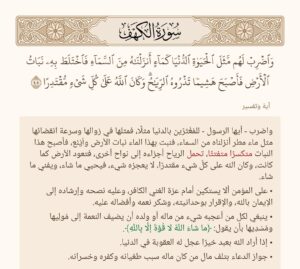 سُورَةُ الكَهْفِ
وَٱضْرِبْ لَهُم مَّثَلَ ٱلْحَيَوٰةِ ٱلدُّنْيَا كَمَآءٍ أَنزَلْنَٰهُ مِنَ ٱلسَّمَآءِ فَٱخْتَلَطَ بِهِۦ نَبَاتُ
ٱلْأَرْضِ فَأَصْبَحَ هَشِيمًا تَذْرُوهُ ٱلرِّيَٰحُ ۗ وَكَانَ ٱللَّهُ عَلَىٰ كُلِّ شَىْءٍ مُّقْتَدِرًا ٤٥
آية وتفسير
واضرب - أيها الرسول - للمغترّين بالدنيا مثلًا، فمثلها في زوالها وسرعة انقضائها
مثل ماء مطر أنزلناه من السماء، فنبت بهذا الماء نبات الأرض وأينع، فأصبح هذا
النبات متكسرًا متفتتًا، تحمل الرياح أجزاءه إلى نواح أخرى، فتعود الأرض كما
كانت، وكان الله على كل شيء مقتدرًا، لا يعجزه شيء، فيحيي ما شاء، ويفني ما
شاء.
- على المؤمن ألا يستكين أمام عزة الغني الكافر، وعليه نصحه وإرشاده إلى
الإيمان بالله، والإقرار بوحدانيته، وشكر نعمه وأفضاله عليه.
- ينبغي لكل من أعجبه شيء من ماله أو ولده أن يضيف النعمة إلى مُولِيها
ومُسْدِيها بأن يقول: ﴿ما شاءَ اللهُ لا قُوَّةَ إلَّا بِاللهِ﴾.
- إذا أراد الله بعبد خيرًا عجل له العقوبة في الدنيا.
- جواز الدعاء بتلف مال من كان ماله سبب طغيانه وكفره وخسرانه.